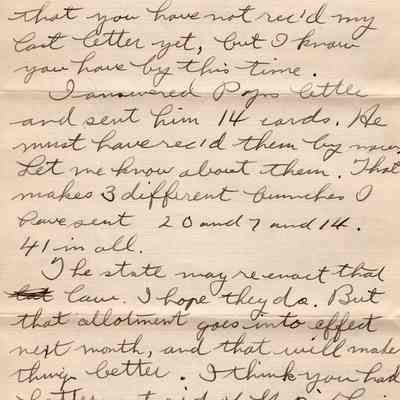 that you have not rec'd my
last letter yet, but I know
you have by this time.
I answered Pops letter
and sent him 14 cards. He
must have rec'd them by now.
Let me know about them. That
makes 3 different bunches I
have sent 20 and 7 and 14.
41 in all.
The state may reenact that
law. I hope they do. But
that allotment goes into effect
next month, and that will make
things better. I think you had